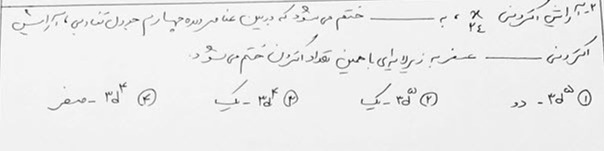 ۲- آرایش الکترونی ₂₄X ، به ______ ختم می‌شود که در بین عناصر دوره چهارم جدول تناوبی ، آرایش
الکترونی ______ عنصر به زیرلایه‌ای با همین تعداد الکترون ختم می‌شود.
① ۳d⁵ - دو ② ۳d⁵ - یک ③ ۳d⁴ - یک ④ ۳d⁴ - صفر